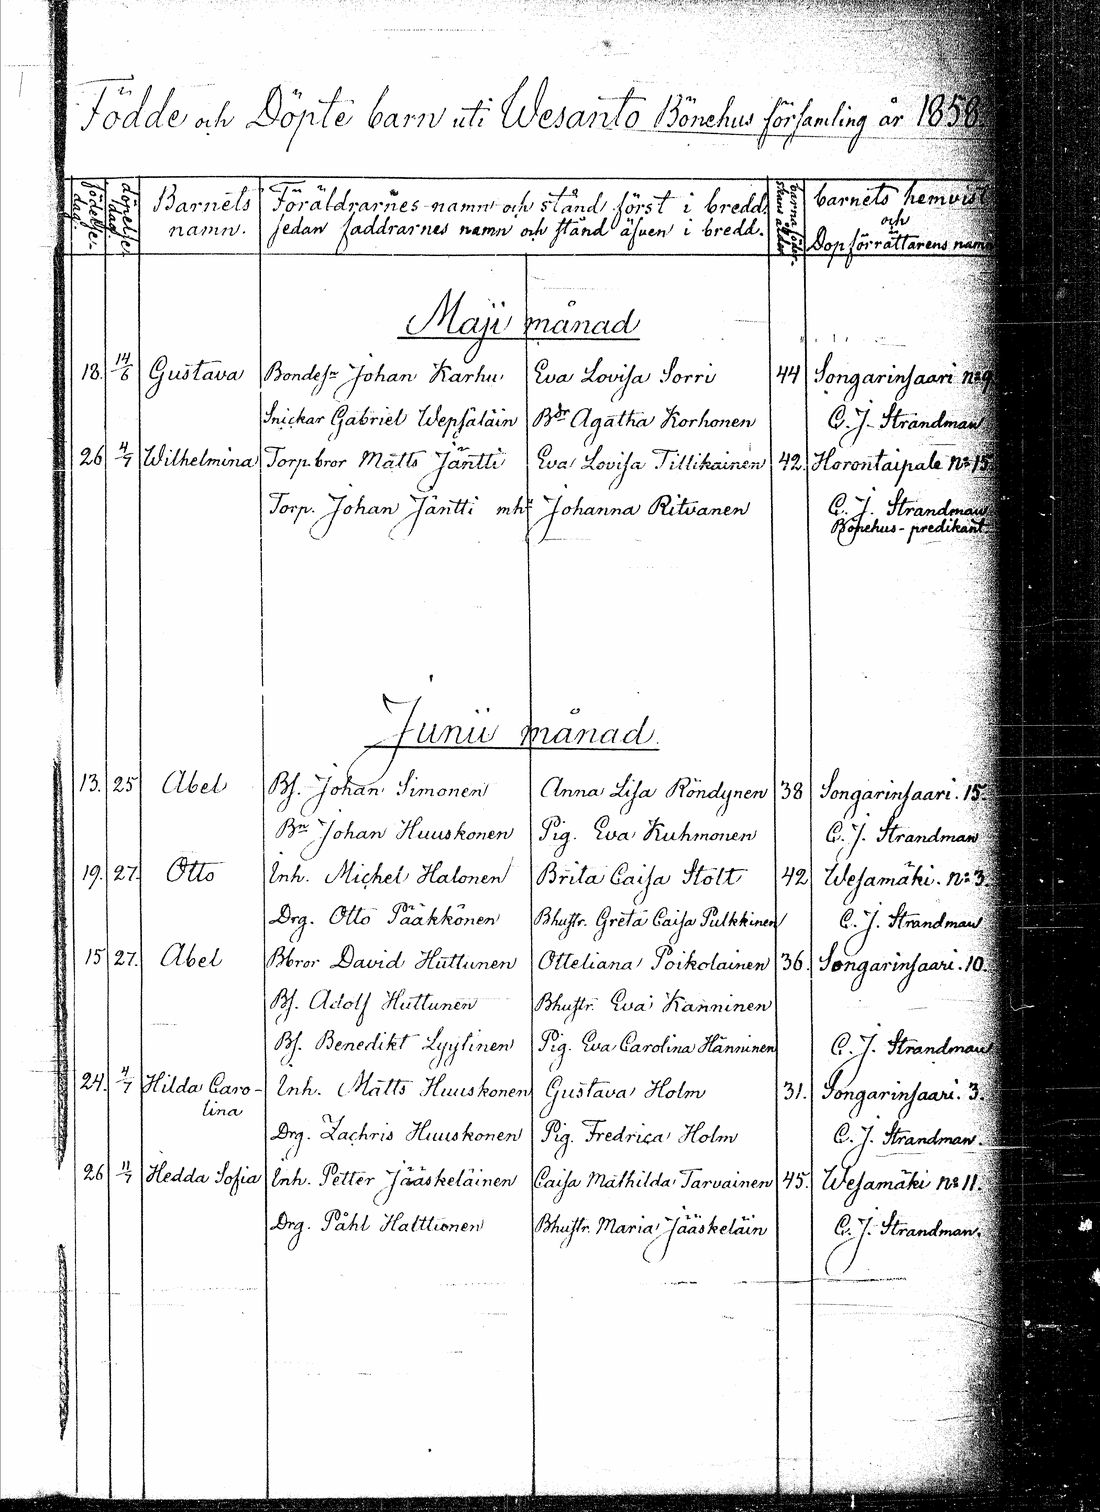 Födde och Döpte barn uti Wesanto Bönehus församling år 1858.
födelse- dag. döpelse- dag. Barnets namn. Föräldrarnes namn och stånd först i bredd, sedan faddrarnes namn och stånd äfven i bredd. barnets hemvist och Dopförrättarens namn
Maji månad
18. 14/6 Gustava Bondesn Johan Karhu Eva Lovisa Sorri 44 Songarinsaari No 9.
Snickar Gabriel Wepsäläin Bdr Agatha Korhonen C. J. Strandman
26 4/7 Wilhelmina Torp.bror Matts Jäntti Eva Lovisa Tillikainen 42. Horontaipale No 15
Torp. Johan Jäntti mh Johanna Ritvanen C. J. Strandman
Bönehus-predikant
Junii månad.
13. 25 Abel Bs. Johan Simonen Anna Lisa Röndynen 38 Songarinsaari. 15.
Bn Johan Huuskonen Pig. Eva Kuhmonen C. J. Strandman
19. 27. Otto Inh. Michel Halonen Brita Caisa Stolt 42 Wesamäki. No 3.
Drg. Otto Pääkkönen Bhustr. Greta Caisa Pulkkinen C. J. Strandman
15 27. Abel Bbror David Huttunen Otteliana Poikolainen 36. Songarinsaari. 10.
Bs. Adolf Huttunen Bhustr. Eva Kanninen
Bs. Benedikt Lyytinen Pig. Eva Carolina Hänninen C. J. Strandman
24. 4/7 Hilda Caro- Inh. Matts Huuskonen Gustava Holm 31. Songarinsaari. 3.
lina
Drg. Zachris Huuskonen Pig. Fredrica Holm C. J. Strandman.
26 11/7 Hedda Sofia Inh. Petter Jääskeläinen Caisa Mathilda Tarvainen 45. Wesamäki No 11.
Drg. Påhl Halttunen Bhustr. Maria Jääskeläin C. J. Strandman.